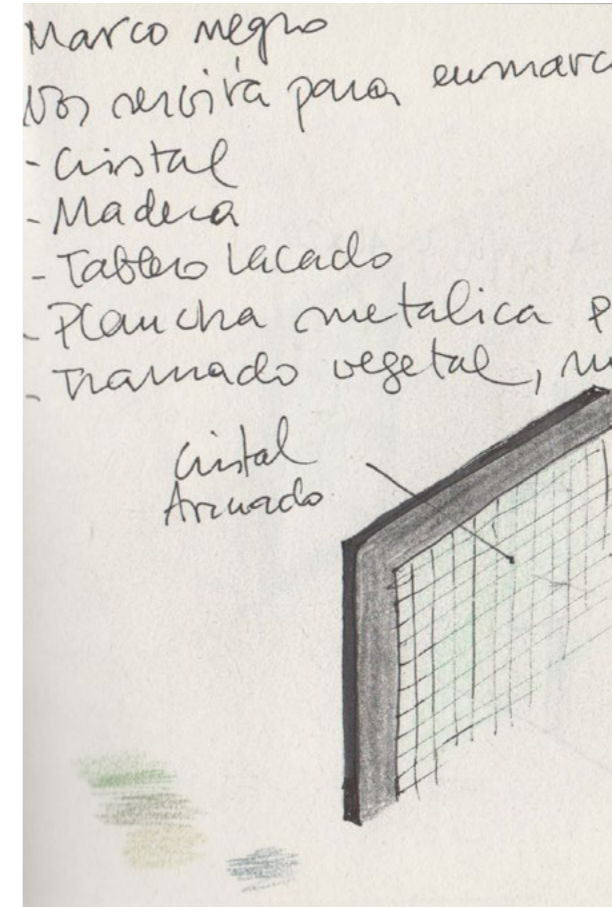 Marco negro
Nos servirá para enmarc
- Cristal
- Madera
- Tablero Lacado
- Plancha metalica p
- Tramado vegetal, m
Cristal
Armado